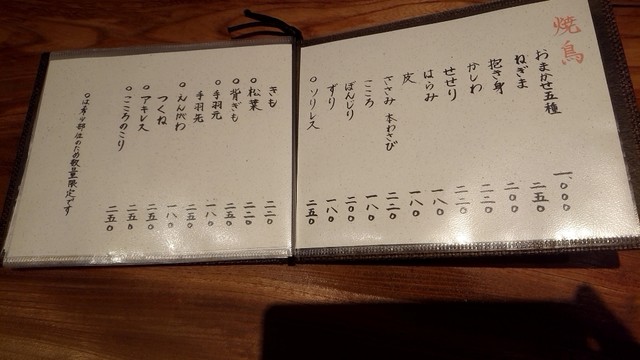 焼鳥
おまかせ五種 一、〇〇〇
ねぎま 二五〇
抱き身 二〇〇
かしわ 二二〇
せせり 二二〇
はらみ 一八〇
皮 一八〇
ささみ 本わさび 二二〇
こころ 一八〇
ぼんじり 二〇〇
ずり 一八〇
○ソリレス 二五〇
きも 二二〇
○松葉 二二〇
○背ぎも 二五〇
○手羽元 一八〇
手羽先 二五〇
○えんがわ 一八〇
つくね 二五〇
○アキレス 二五〇
○こころのこり 二五〇
○は希少部位のため数量限定です